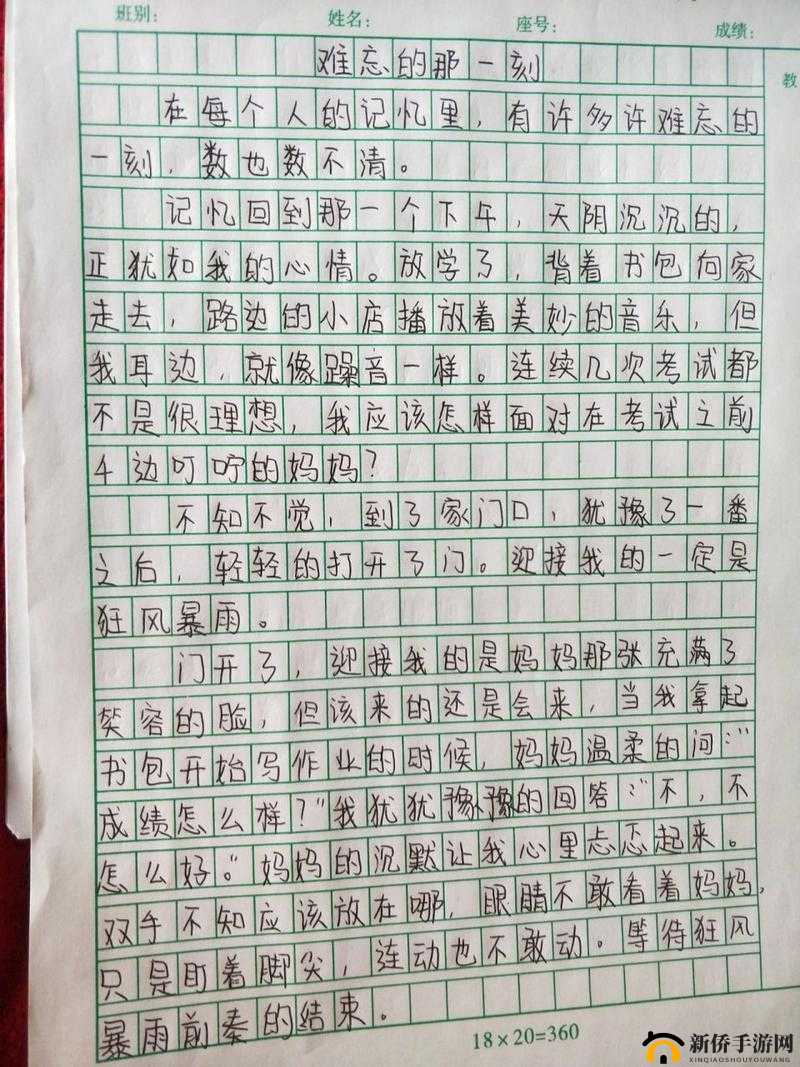 班别： 姓名： 座号： 成绩：
难忘的那一刻
教
在每个人的记忆里，有许多许难忘的
一刻，数也数不清。
记忆回到那一个下午，天阴沉沉的，
正犹如我的心情。放学了，背着书包向家
走去，路边的小店播放着美妙的音乐，但
我耳边，就像躁音一样。连续几次考试都
不是很理想，我应该怎样面对在考试之前
千边叮咛的妈妈？
不知不觉，到了家门口，犹豫了一番
之后，轻轻的打开了门。迎接我的一定是
狂风暴雨。
门开了，迎接我的是妈妈那张充满了
笑容的脸，但该来的还是会来，当我拿起
书包开始写作业的时候，妈妈温柔的问：“
成绩怎么样？”我犹犹豫豫的回答：“不，不
怎么好。”妈妈的沉默让我心里忐忑起来。
双手不知应该放在哪，眼睛不敢看着妈妈，
只是盯着脚尖，连动也不敢动。等待狂风
暴雨前奏的结束。
18×20=360
新侨手游网
XINQIAOSHOUYOUWANG